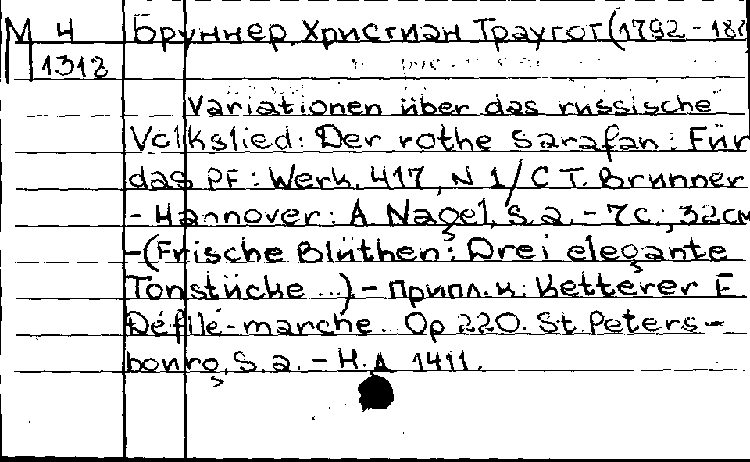 М 4 Бруннер, Христиан Траугот (1792 - 18
1318
Variationen über das russische
Volkslied: Der rothe Sarafan: Für
das PF: Werk. 417, N 1/C T. Brunner
- Hannover: A Nagel, S. a. - 7 с.; 32см
-(Frische Blüthen: Drei elegante
Tonstücke ...) - Припл. к: Ketterer E
Défilé-marche. Op 220. St. Peters-
bourg, S. a. - Н. д 1411.